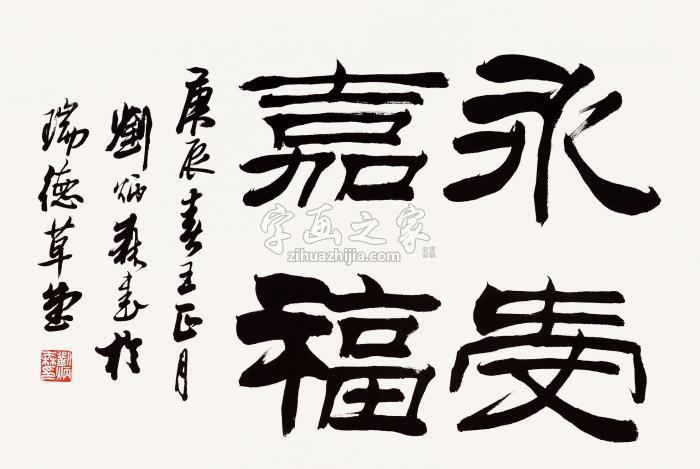 永受
嘉福
庚辰春王正月
劉炳森書於
瑞德草堂
劉炳
森印
字画之家
zihuazhijia.com